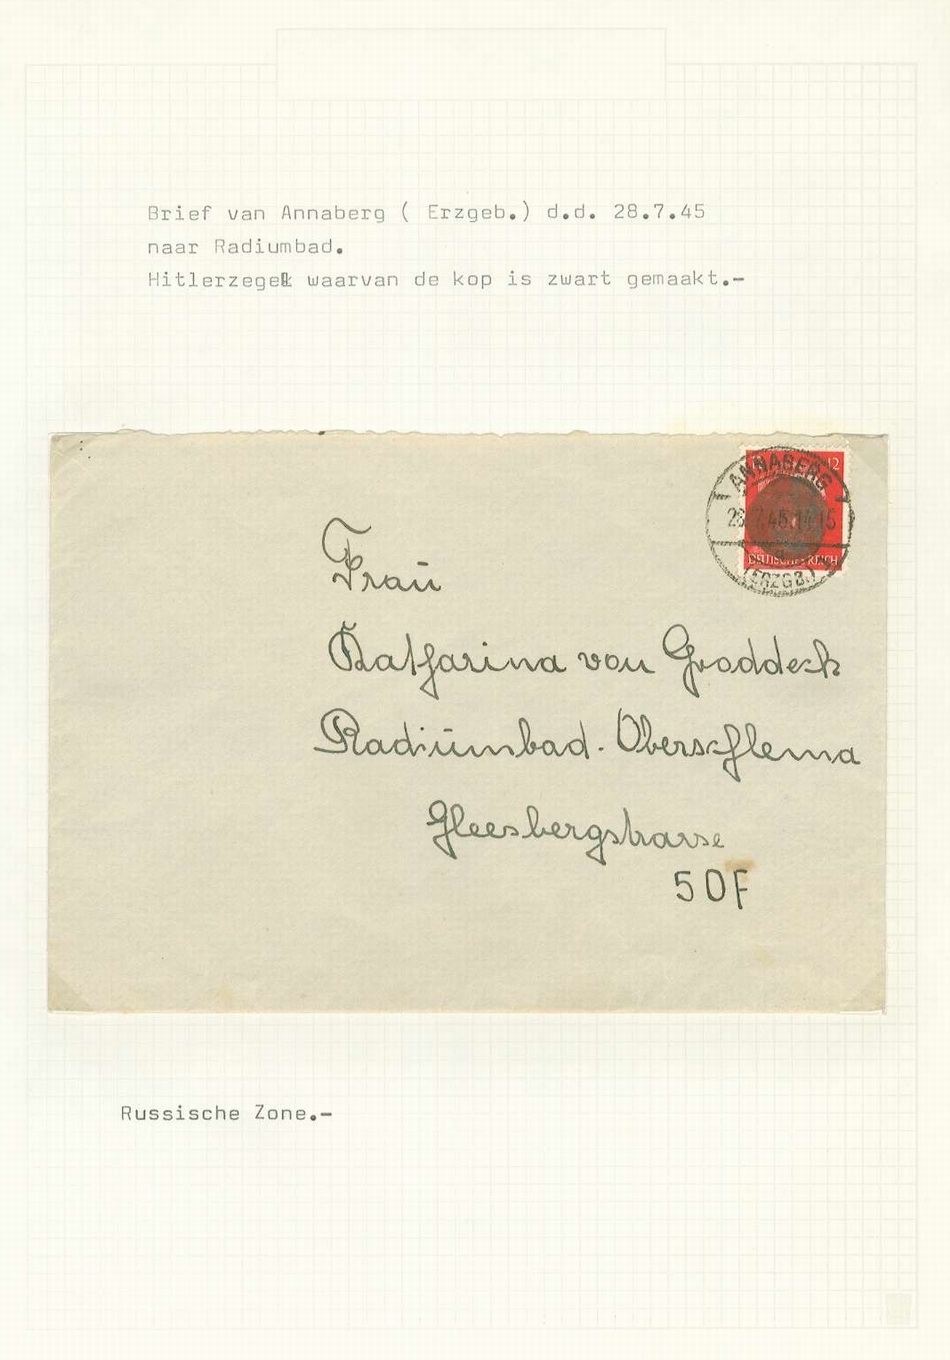 Brief van Annaberg ( Erzgeb.) d.d. 28.7.45
naar Radiumbad.
Hitlerzegel waarvan de kop is zwart gemaakt.-
12
ANNABERG
28.7.45.14-15
DEUTSCHES REICH
(ERZGB.)
Frau
Katharina von Groddeck
Radiumbad-Oberschlema
Gleesbergstrasse
50F
Russische Zone.-